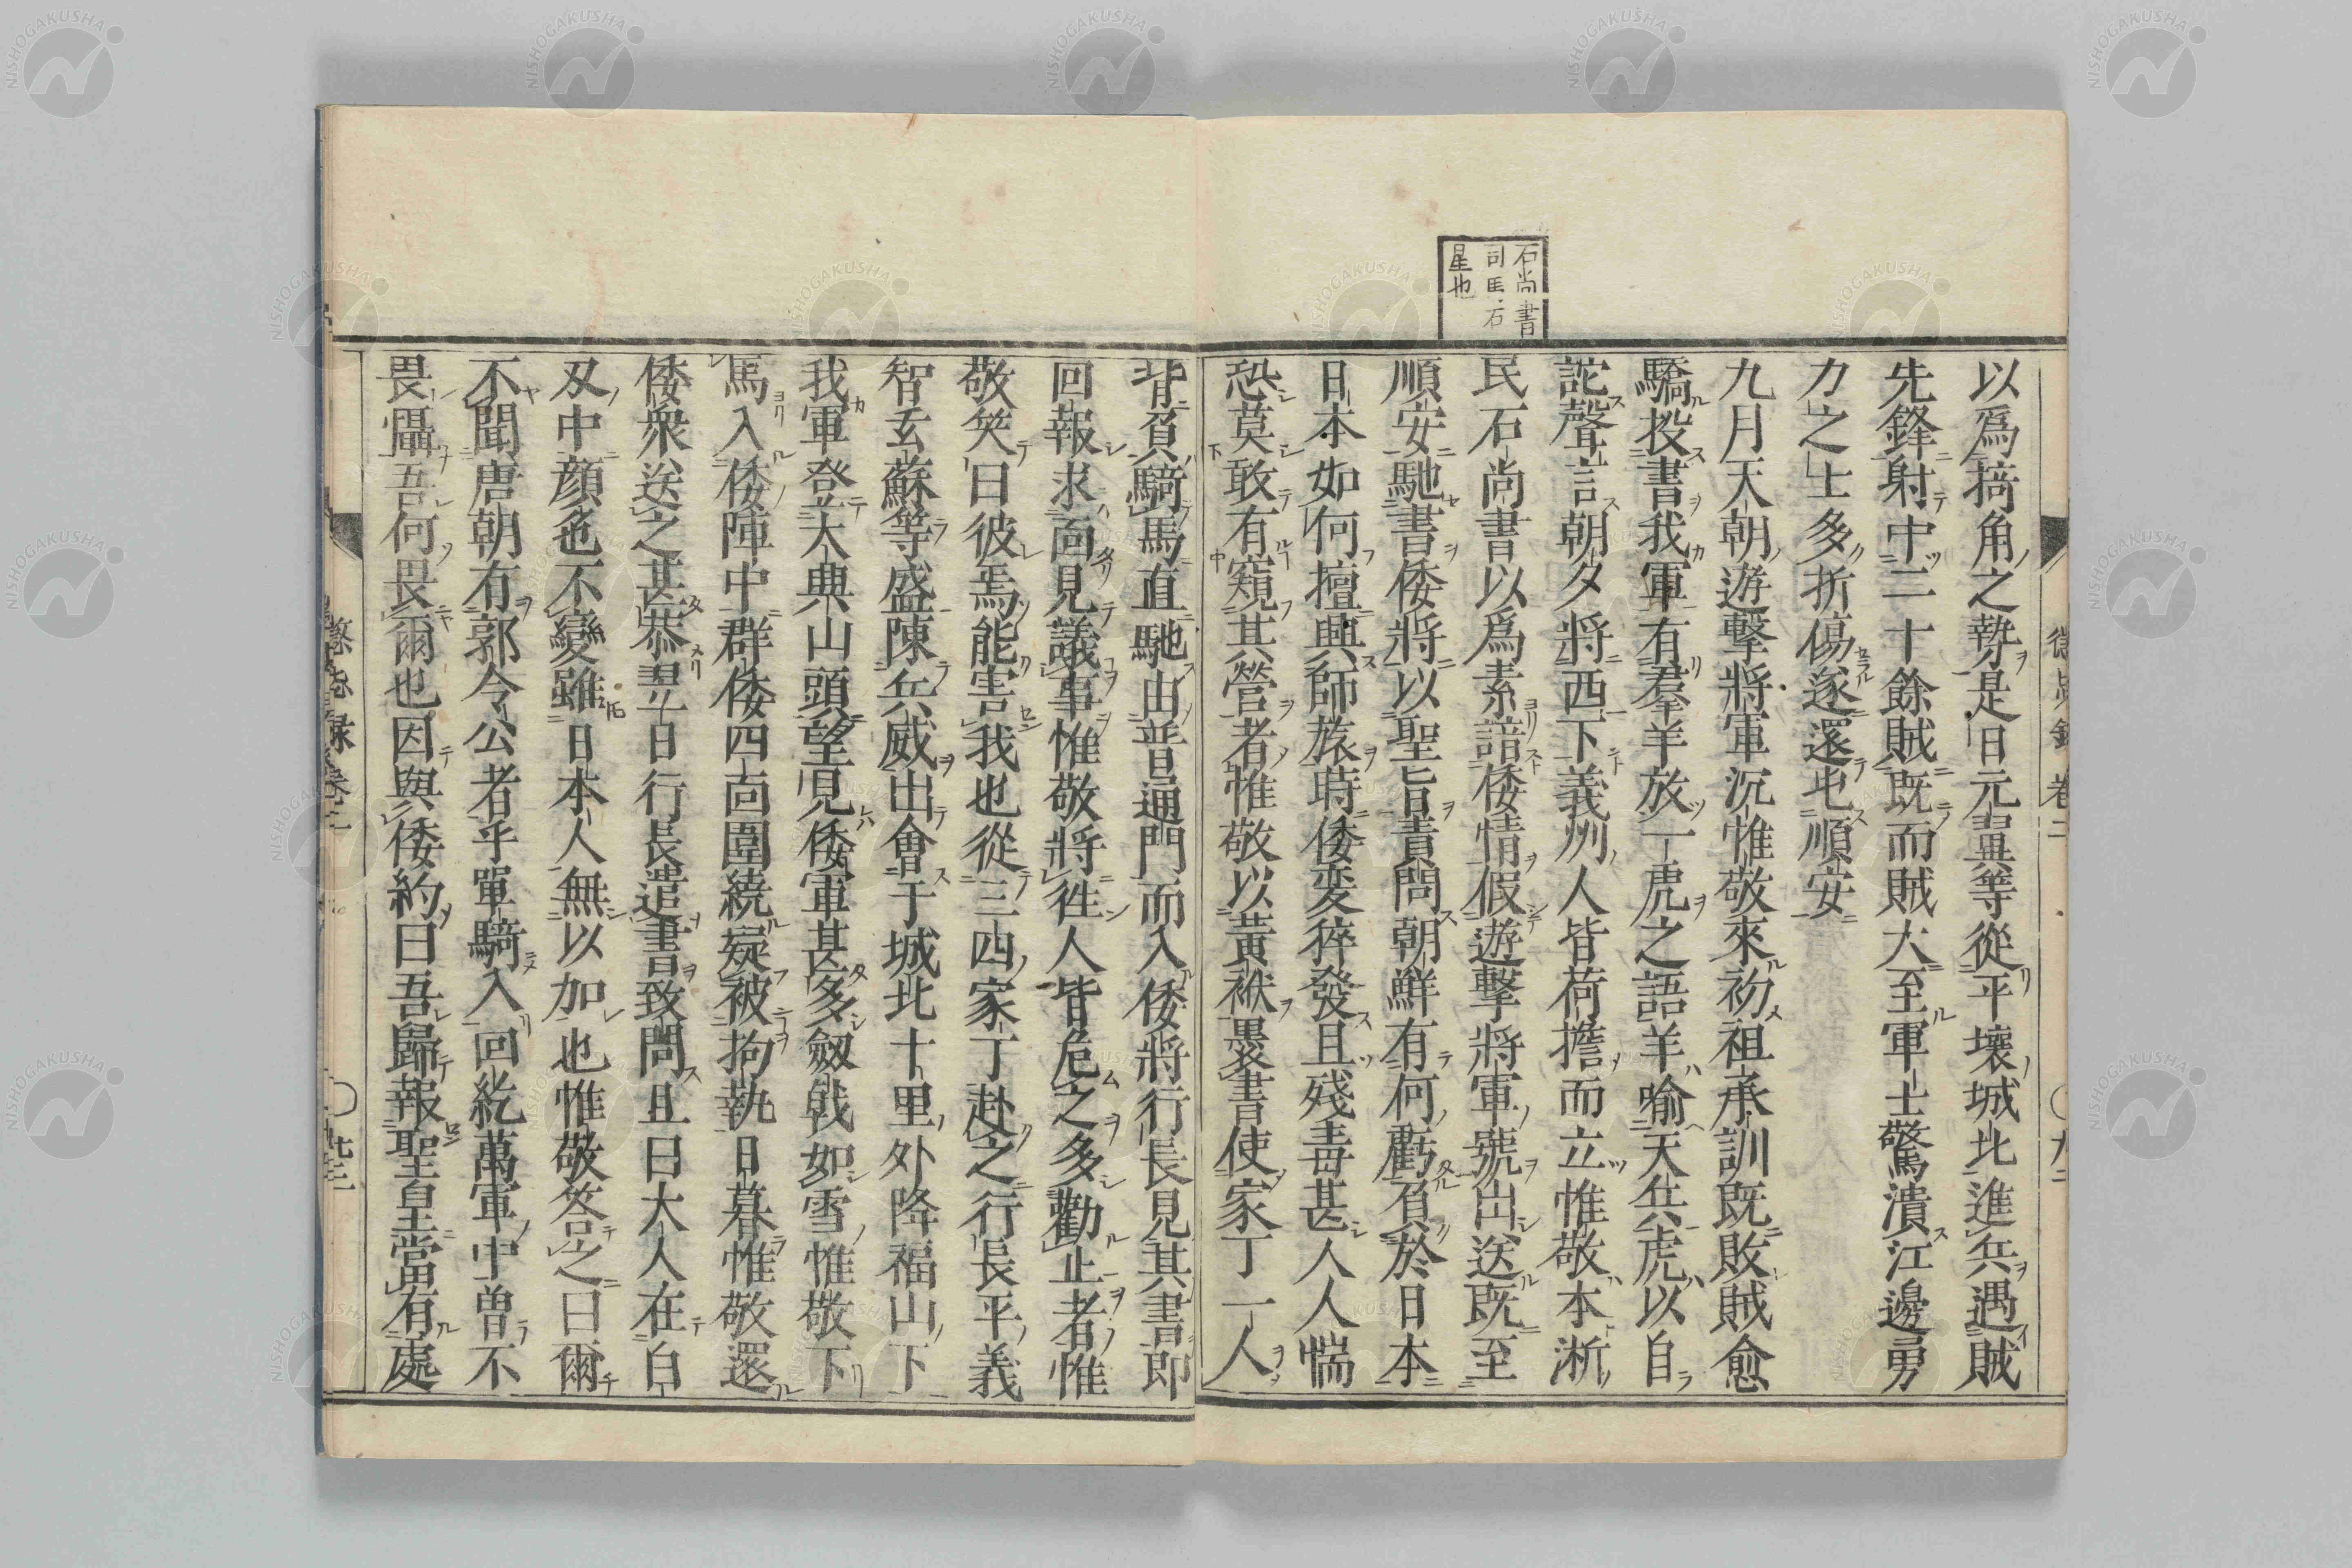 石尚書
司馬石
星也
以爲掎角之勢是日元翼等從平壤城北進兵遇賊
先鋒射中二十餘賊既而賊大至軍士驚潰江邊勇
力之士多折傷遂還屯順安
九月天朝遊擊將軍沉惟敬來初祖承訓既敗賊愈
驕投書我軍有羣羊放一虎之語羊喻天兵虎以自
詑聲言朝夕將西下義州人皆荷擔而立惟敬本浙
民石尚書以爲素諳倭情假遊擊將軍號出送既至
順安馳書倭將以聖旨責問朝鮮有何虧負於日本
日本如何擅興師旅時倭変猝發且殘毒甚人人惴
恐莫敢有窺其營者惟敬以黄袱裹書使家丁一人
背負騎馬直馳由普通門而入倭將行長見其書即
回報求面見議事惟敬將徃人皆危之多勸止者惟
敬笑曰彼焉能害我也從三四家丁赴之行長平義
智玄蘇等盛陳兵威出會于城北十里外降福山下
我軍登大興山頭望見倭軍甚多劔戟如雪惟敬下
馬入倭陣中群倭四面圍繞疑被拘執日暮惟敬還
倭衆送之甚恭翌日行長遣書致問且曰大人在白
刃中顔色不變雖日本人無以加也惟敬答之曰爾
不聞唐朝有郭令公者乎單騎入回紇萬軍中曽不
畏懾吾何畏爾也因與倭約曰吾歸報聖皇當有處
懲毖録 卷二